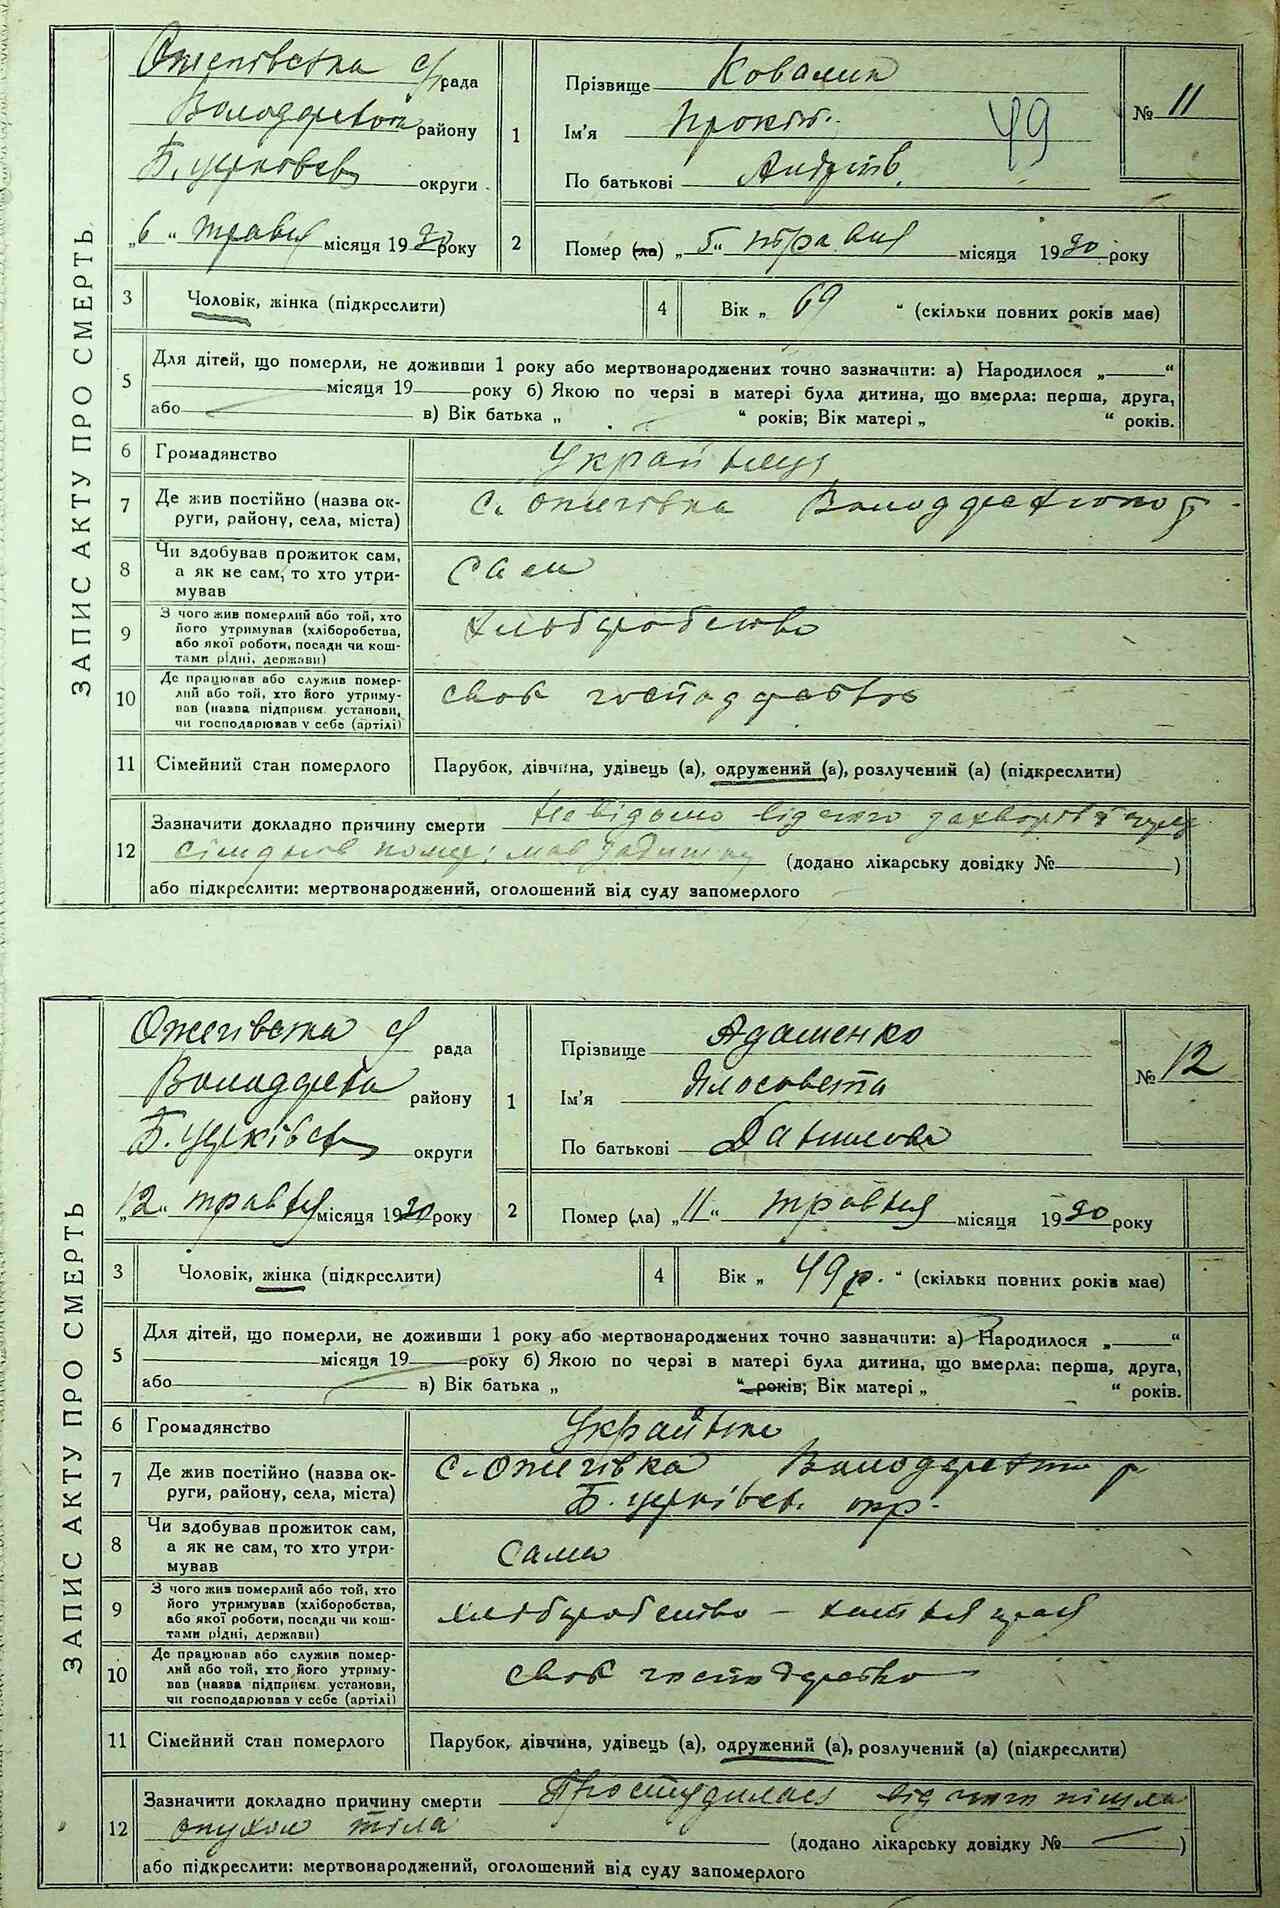 ЗАПИС АКТУ ПРО СМЕРТЬ
Ожегівська с/рада
району
Б. Церковськ округи
„6“ травня місяця 1930 року
1
Прізвище Ковалик
Ім'я
49
По батькові Андріїв.
№ 11
2 Помер (ла) „5“ травня місяця 1930 року
3 Чоловік, жінка (підкреслити)
4 Вік „ 69 “ (скільки повних років має)
5 Для дітей, що померли, не доживши 1 року або мертвонароджених точно зазначити: а) Народилося „ “
місяця 19 року б) Якою по черзі в матері була дитина, що вмерла: перша, друга,
або в) Вік батька „ “ років; Вік матері „ “ років.
6 Громадянство Украйнець
7 Де жив постійно (назва ок-
руги, району, села, міста) с. Ожегівка
8 Чи здобував прожиток сам,
а як не сам, то хто утри-
мував сам
9 З чого жив померлий або той, хто
його утримував (хліборобства,
або якої роботи, посади чи кош-
тами рідні, держави) хліборобство
10 Де працював або служив помер-
лий або той, хто його утриму-
вав (назва підприєм. установи,
чи господарював у себе (артілі) своє господарство
11 Сімейний стан померлого Парубок, дівчина, удівець (а), одружений (а), розлучений (а) (підкреслити)
12 Зазначити докладно причину смерти Невідомо від чого захворів
(додано лікарську довідку № )
або підкреслити: мертвонароджений, оголошений від суду запомерлого
ЗАПИС АКТУ ПРО СМЕРТЬ
Ожегівська с/ рада
району
Б. Церківськ округи
„12“ травня місяця 1930 року
1
Прізвище Адаменко
Ім'я Ялосовета
По батькові Данилова
№ 12
2 Помер (ла) „11“ травня місяця 1930 року
3 Чоловік, жінка (підкреслити)
4 Вік „ 49 р. “ (скільки повних років має)
5 Для дітей, що померли, не доживши 1 року або мертвонароджених точно зазначити: а) Народилося „ “
місяця 19 року б) Якою по черзі в матері була дитина, що вмерла: перша, друга,
або в) Вік батька „ “ років; Вік матері „ “ років.
6 Громадянство Украйнка
7 Де жив постійно (назва ок-
руги, району, села, міста) с. Ожегівка
Б. Церківськ. окр.
8 Чи здобував прожиток сам,
а як не сам, то хто утри-
мував сама
9 З чого жив померлий або той, хто
його утримував (хліборобства,
або якої роботи, посади чи кош-
тами рідні, держави) хліборобство –
10 Де працював або служив помер-
лий або той, хто його утриму-
вав (назва підприєм. установи,
чи господарював у себе (артілі) своє господарство
11 Сімейний стан померлого Парубок, дівчина, удівець (а), одружений (а), розлучений (а) (підкреслити)
12 Зазначити докладно причину смерти Простудилась від чого пішла
опухол тіла (додано лікарську довідку № )
або підкреслити: мертвонароджений, оголошений від суду запомерлого